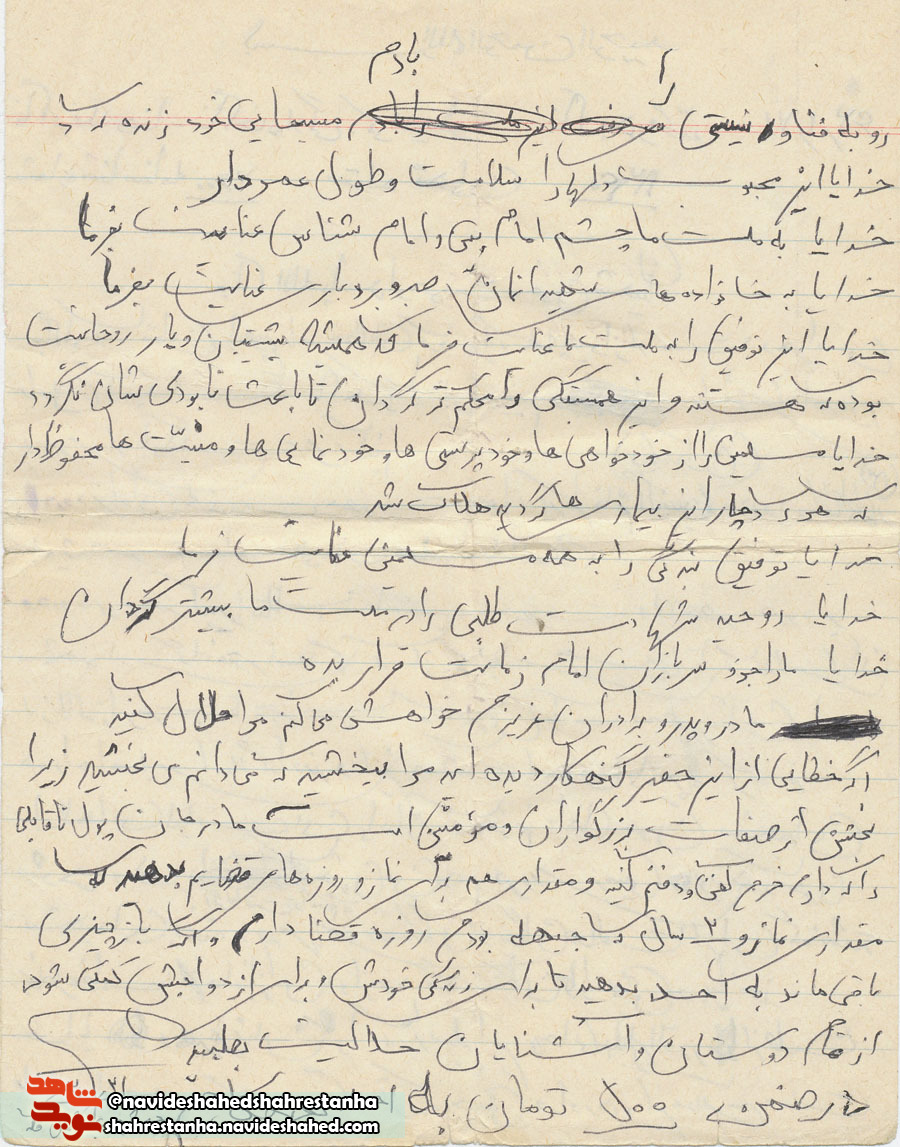 را
بادم
رو به فنا و نیستی مسیحایی خود زنده کرد
خدایا این محبوب دلها را سلامت و طول عمر دار
خدایا به ملت ما چشم امام بین و امام شناس عنایت بفرما
خدایا به خانواده های شهیدانمان صبر و بردباری عنایت بفرما
خدایا این توفیق را به ملت ما عنایت فرما که همیشه پشتیبان و یار روحانیت
بوده که هستند و این همبستگی را محکم تر گردان تا باعث نابودی شان نگردد
خدایا مسلمین را از خودخواهی ها و خودپرستی ها و خودنمایی ها و منیّت ها محفوظ دار
که هر که دچار این بیماری ها گردید هلاک شد
خدایا توفیق بندگی را به همه مسلمین عنایت فرما
خدایا روحیه شهادت طلبی را در ملت ما بیشتر گردان
خدایا ما را جزو سربازان امام زمانت قرار بده
مادر و پدر و برادران عزیزم خواهش می کنم مرا حلال کنید
اگر خطایی از این حقیر گنهکار دیده اید مرا ببخشید که می دانم می بخشید زیرا
بخشش از صفات بزرگواران و مؤمنین است مادر جان پول ناقابلی
را که دارم خرج کفن و دفنم کنید و مقداری هم برای نماز و روزه های قضایم بدهید که
مقداری نماز و ۳ سال که جبهه بودم روزه قضا دارم و اگر باز چیزی
باقی ماند به احمد بدهید تا برای زندگی خودش و برای ازدواجش کمکی شود
از تمام دوستان و آشنایان حلالیت بطلبید
در ضمن ۵۰۰ تومان به
شاهد
نوید
@navideshahedshahrestanha
shahrestanha.navideshahed.com